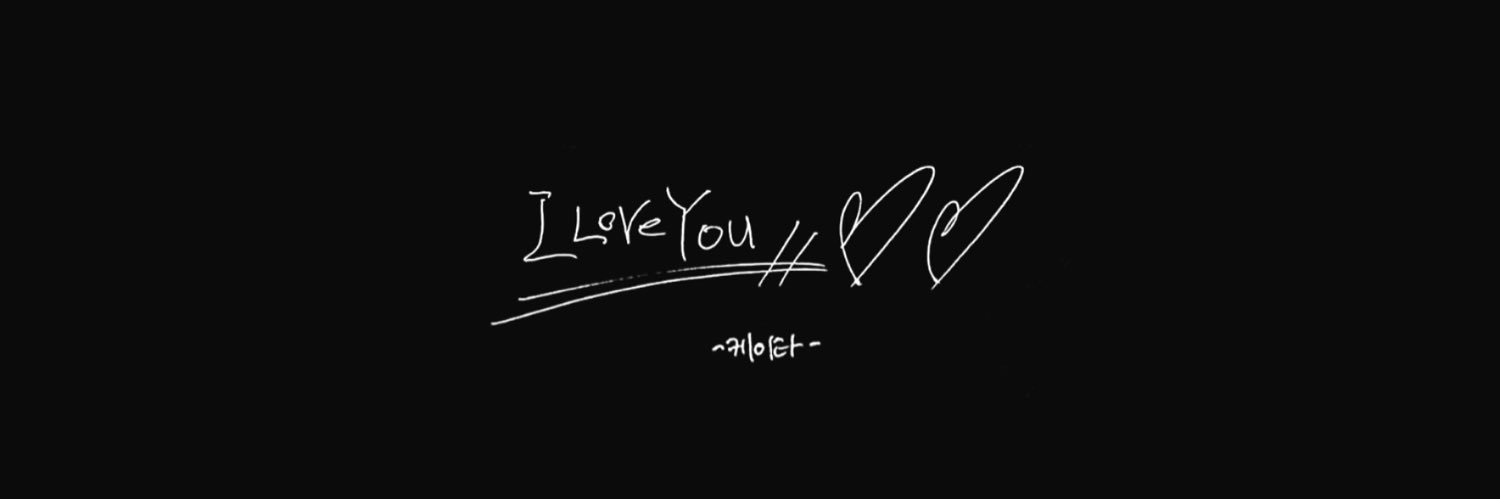 I Love You // ♡♡
-케이타-